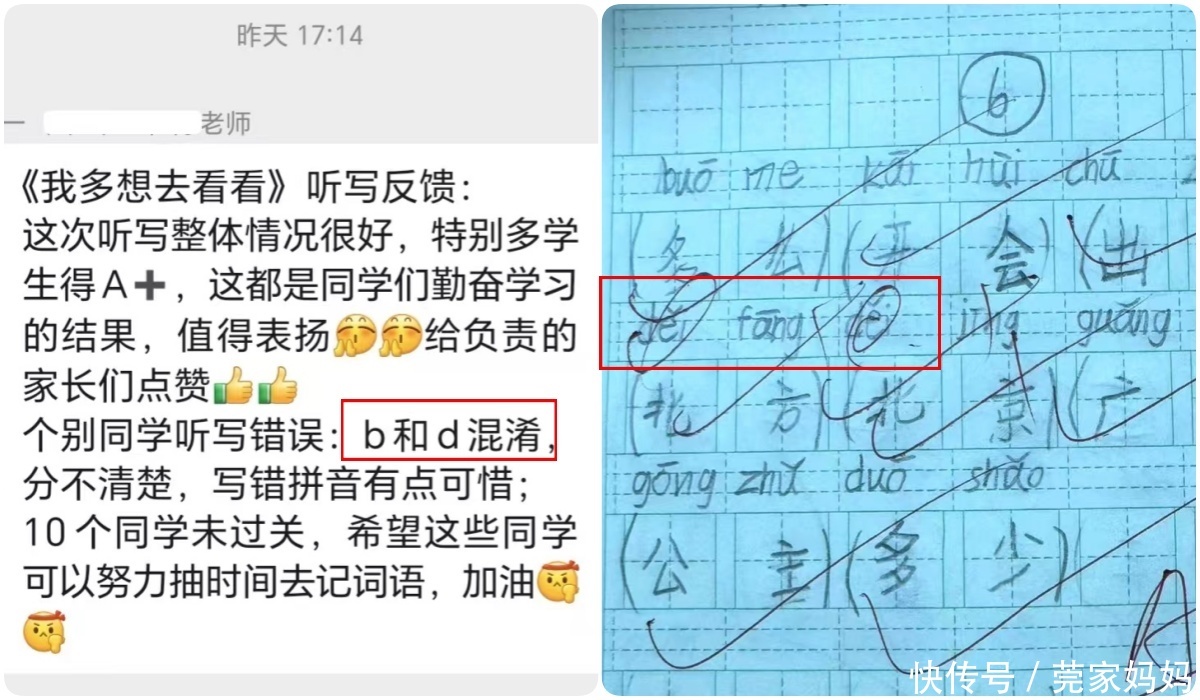 昨天 17:14
老师
《我多想去看看》听写反馈：
这次听写整体情况很好，特别多学
生得A➕，这都是同学们勤奋学习
的结果，值得表扬给负责的
家长们点赞👍👍
个别同学听写错误：b和d混淆，
分不清楚，写错拼音有点可惜；
10个同学未过关，希望这些同学
可以努力抽时间去记词语，加油
6
buō me kāi hùi chū
(多 么)(开 会)(出
děi fāng děi jīng guǎng
(北 方)(北 京)(广
gōng zhǔ duō shǎo
(公 主)(多 少)
A
快传号 / 莞家妈妈